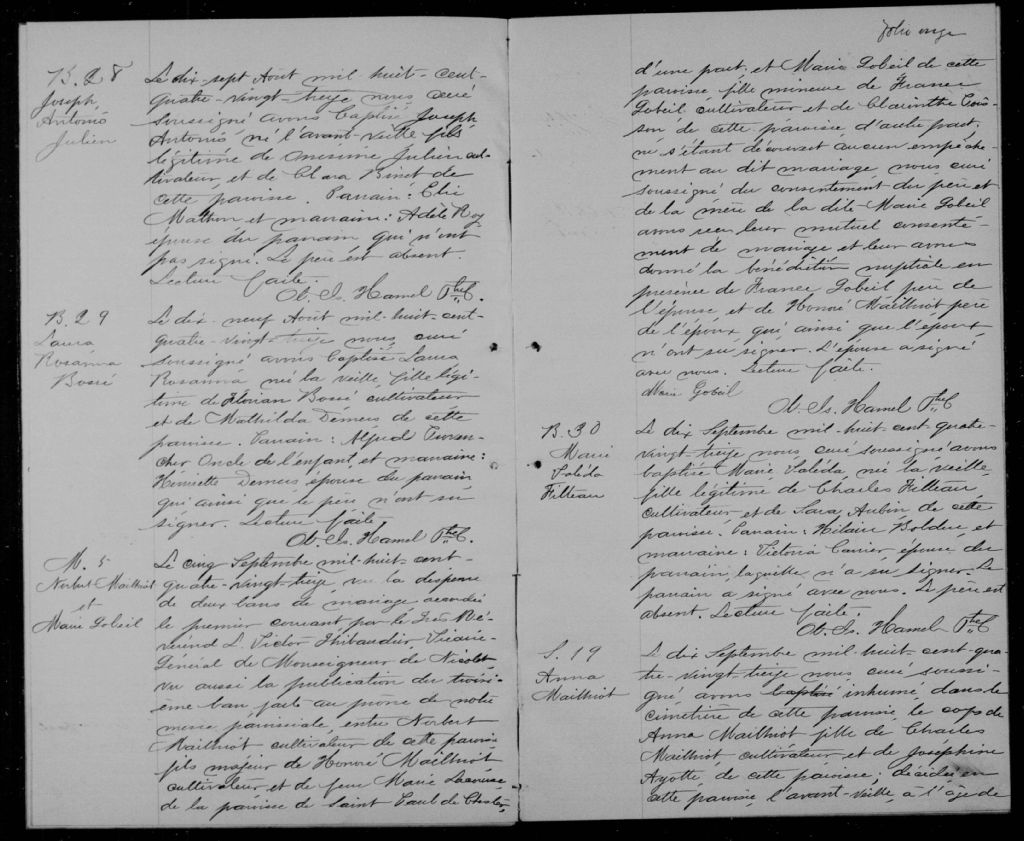 B. 28
Joseph
Antonio
Julien
Le dix-sept Août mil-huit-cent-
quatre-vingt-treize nous curé
soussigné avons baptisé Joseph
Antonio né l'avant-veille fils
légitime de Onésime Julien cul-
tivateur, et de Clara Binet de
cette paroisse. Parrain: Elie
Mathieu et marraine: Adèle Roy
épouse du parrain qui n'ont
pas signé. Le père est absent.
Lecture faite.
Ol. Is. Hamel Ptre C.
B. 29
Laura
Rosanna
Bossé
Le dix-neuf Août mil-huit-cent-
quatre-vingt-treize nous curé
soussigné avons baptisé Laura
Rosanna née la veille, fille légi-
time de Florian Bossé cultivateur
et de Mathilda Demers de cette
paroisse. Parrain: Alfred
Oncle de l'enfant, et marraine:
Henriette Demers épouse du parrain
qui ainsi que le père n'ont su
signer. Lecture faite
Ol. Is. Hamel Ptre C.
M. 5
Norbert Mailhiot
et
Marie Gobeil
Le cinq Septembre mil-huit-cent-
quatre-vingt-treize, vu la dispense
de deux bans de mariage accordée
le premier courant par le Très Ré-
vérend L. Victor Thibaudier, Vicaire-
Général de Monseigneur de Nicolet,
vu aussi la publication du troisi-
ème ban faite au prône de notre
messe paroissiale, entre Norbert
Mailhiot cultivateur de cette paroisse
fils majeur de Honoré Mailhiot
cultivateur, et de feue Marie
de la paroisse de Saint Paul de Chester,
folio onze
d'une part, et Marie Gobeil de cette
paroisse fille mineure de France
Gobeil cultivateur et de Clarinthe
de cette paroisse, d'autre part,
ne s'étant découvert aucun empêche-
ment au dit mariage, nous curé
soussigné du consentement du père et
de la mère de la dite Marie Gobeil
avons reçu leur mutuel consente-
ment de mariage et leur avons
donné la bénédiction nuptiale en
présence de France Gobeil père de
l'épouse, et de Honoré Mailhiot père
de l'époux qui ainsi que l'époux
n'ont su signer. L'épouse a signé
avec nous. Lecture faite.
Marie Gobeil
Ol. Is. Hamel Ptre C
B. 30
Marie
Saléda
Filteau
Le dix Septembre mil-huit-cent-quatre-
vingt-treize nous curé soussigné avons
baptisé Marie Saléda née la veille
fille légitime de Charles Filteau,
cultivateur, et de Sara Aubin de cette
paroisse. Parrain: Hilaire Bolduc, et
marraine: Victoria Carrier épouse du
parrain, laquelle n'a su signer. Le
parrain a signé avec nous. Le père est
absent. Lecture faite.
Ol. Is. Hamel Ptre C
S. 19
Anna
Mailhiot
Le dix Septembre mil-huit-cent-qua-
tre-vingt-treize nous curé soussi-
gné avons baptisé inhumé dans le
cimetière de cette paroisse le corps de
Anna Mailhiot fille de Charles
Mailhiot, cultivateur, et de Joséphine
Ayotte de cette paroisse, décédée en
cette paroisse, l'avant-veille, à l'âge de